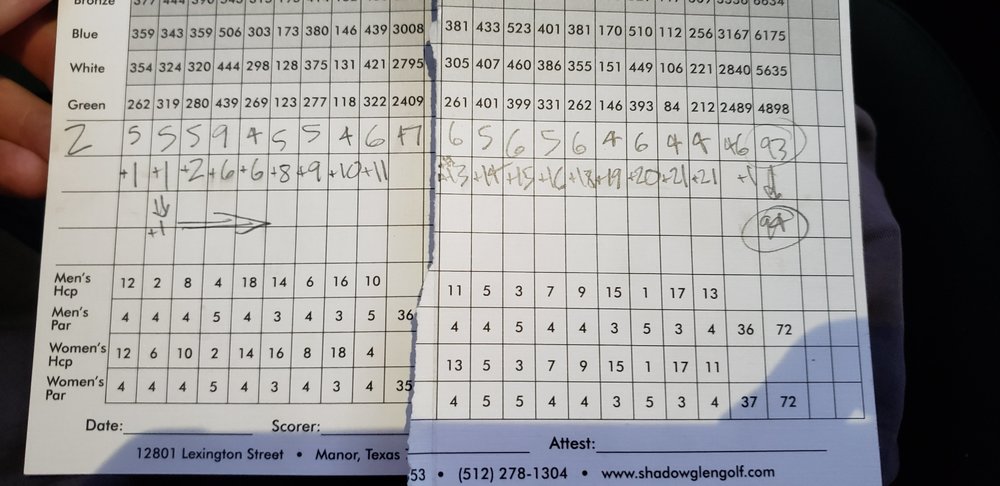 Blue 359 343 359 506 303 173 380 146 439 3008 381 433 523 401 381 170 510 112 256 3167 6175
White 354 324 320 444 298 128 375 131 421 2795 305 407 460 386 355 151 449 106 221 2840 5635
Green 262 319 280 439 269 123 277 118 322 2409 261 401 399 331 262 146 393 84 212 2489 4898
Z 5 5 5 9 4 5 5 4 6 47 6 5 6 5 6 4 6 4 4 46 93
+1 +1 +2 +6 +6 +8 +9 +10 +11 +13 +14 +15 +16 +18 +19 +20 +21 +21 +1
+1 94
Men's Hcp 12 2 8 4 18 14 6 16 10 11 5 3 7 9 15 1 17 13
Men's Par 4 4 4 5 4 3 4 3 5 36 4 4 5 4 4 3 5 3 4 36 72
Women's Hcp 12 6 10 2 14 16 8 18 4 13 5 3 7 9 15 1 17 11
Women's Par 4 4 4 5 4 3 4 3 4 35 4 5 5 4 4 3 5 3 4 37 72
Date: Scorer: Attest:
12801 Lexington Street • Manor, Texas 53 • (512) 278-1304 • www.shadowglengolf.com